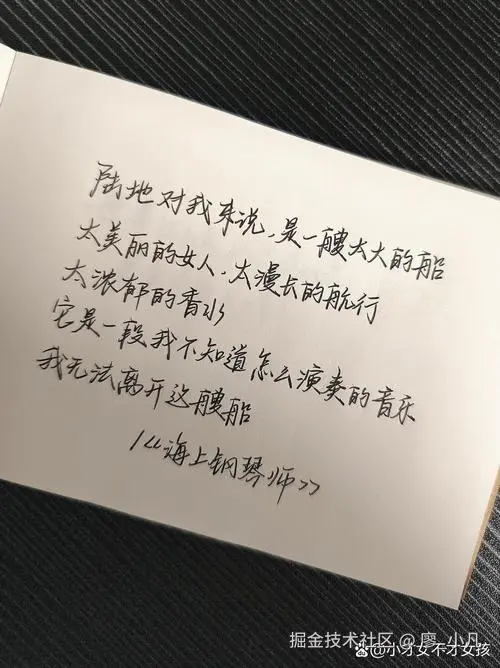 陆地对我来说,是一艘太大的船
太美丽的女人,太漫长的航行
太浓郁的香水
它是一段我不知道怎么演奏的音乐
我无法离开这艘船
/《海上钢琴师》
掘金技术社区 @ 廖_小凡
@小才女不才女孩